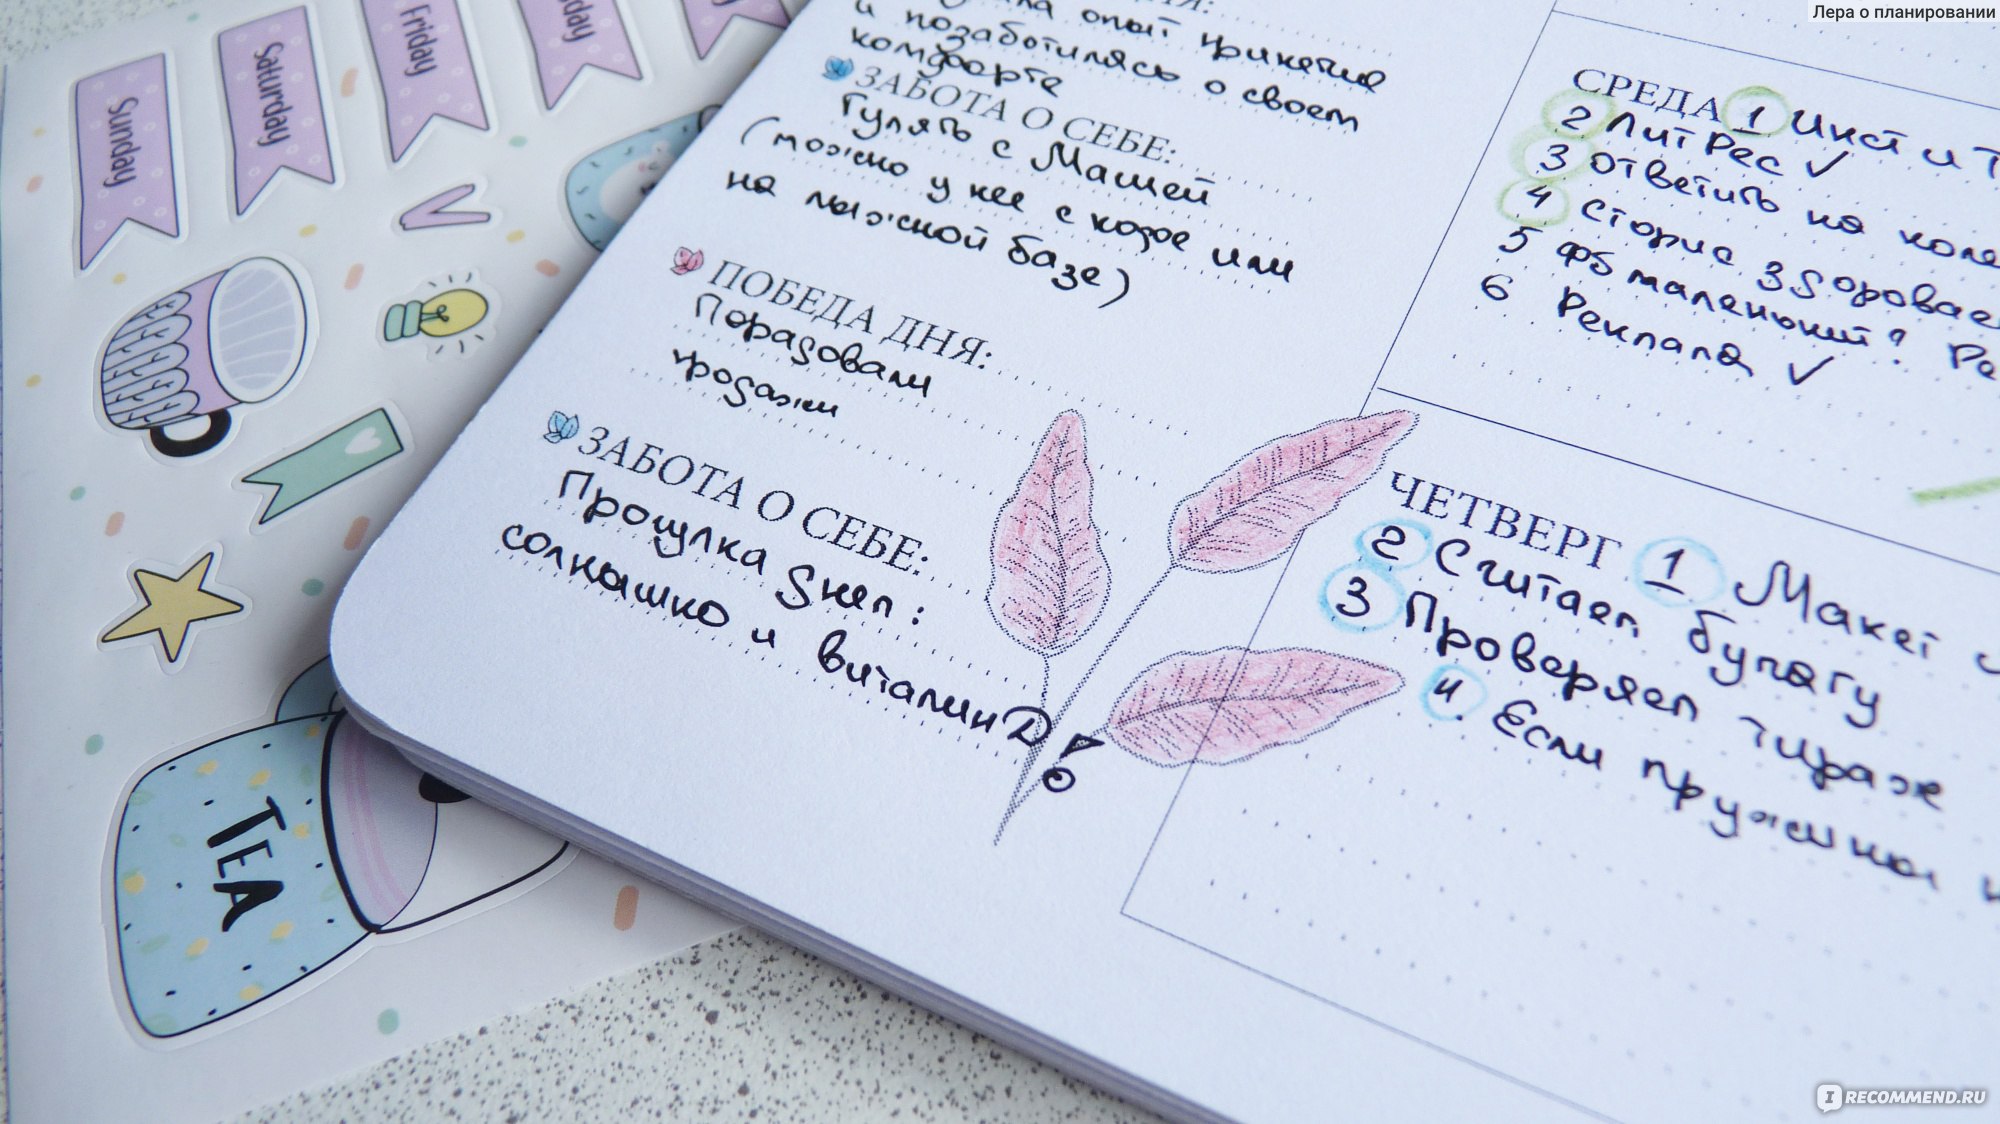 Лера о планировании
Sunday
Saturday
Friday
опыт принятия
и позаботилась о своем
комфорте
ЗАБОТА О СЕБЕ:
Гулять с Машей
(можно у нее с кофе или
на лыжной базе)
ПОБЕДА ДНЯ:
Порадовали
продажи
ЗАБОТА О СЕБЕ:
Прогулка днем:
солнышко и витамин D!
TEA
СРЕДА 1 Инст и Т
2 ЛитРес ✓
3 ответить на
4 сторис Здоровает
5 ФБ маленький?
6 Реклама ✓
ЧЕТВЕРГ 1 Макет
2 Считаем бумагу
3 Проверяем тираж
4 Если пружины
IRECOMMEND.RU